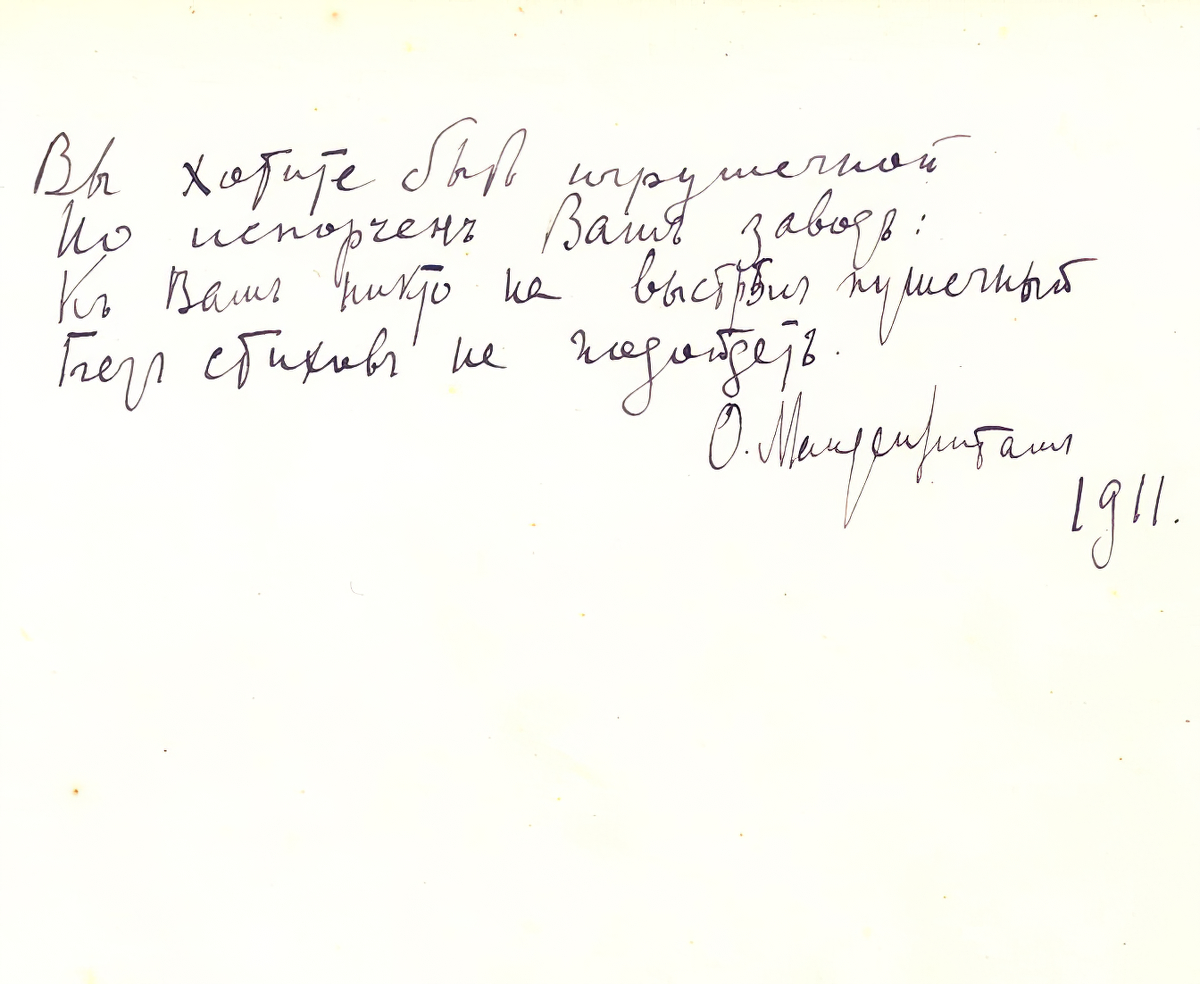 Вы хотите быть игрушечной
Но испорченъ Вашъ заводъ:
Къ Вамъ никто на выстрѣлъ пушечный
Безъ стиховъ не подойдетъ.
О. Мандельштамъ
1911.